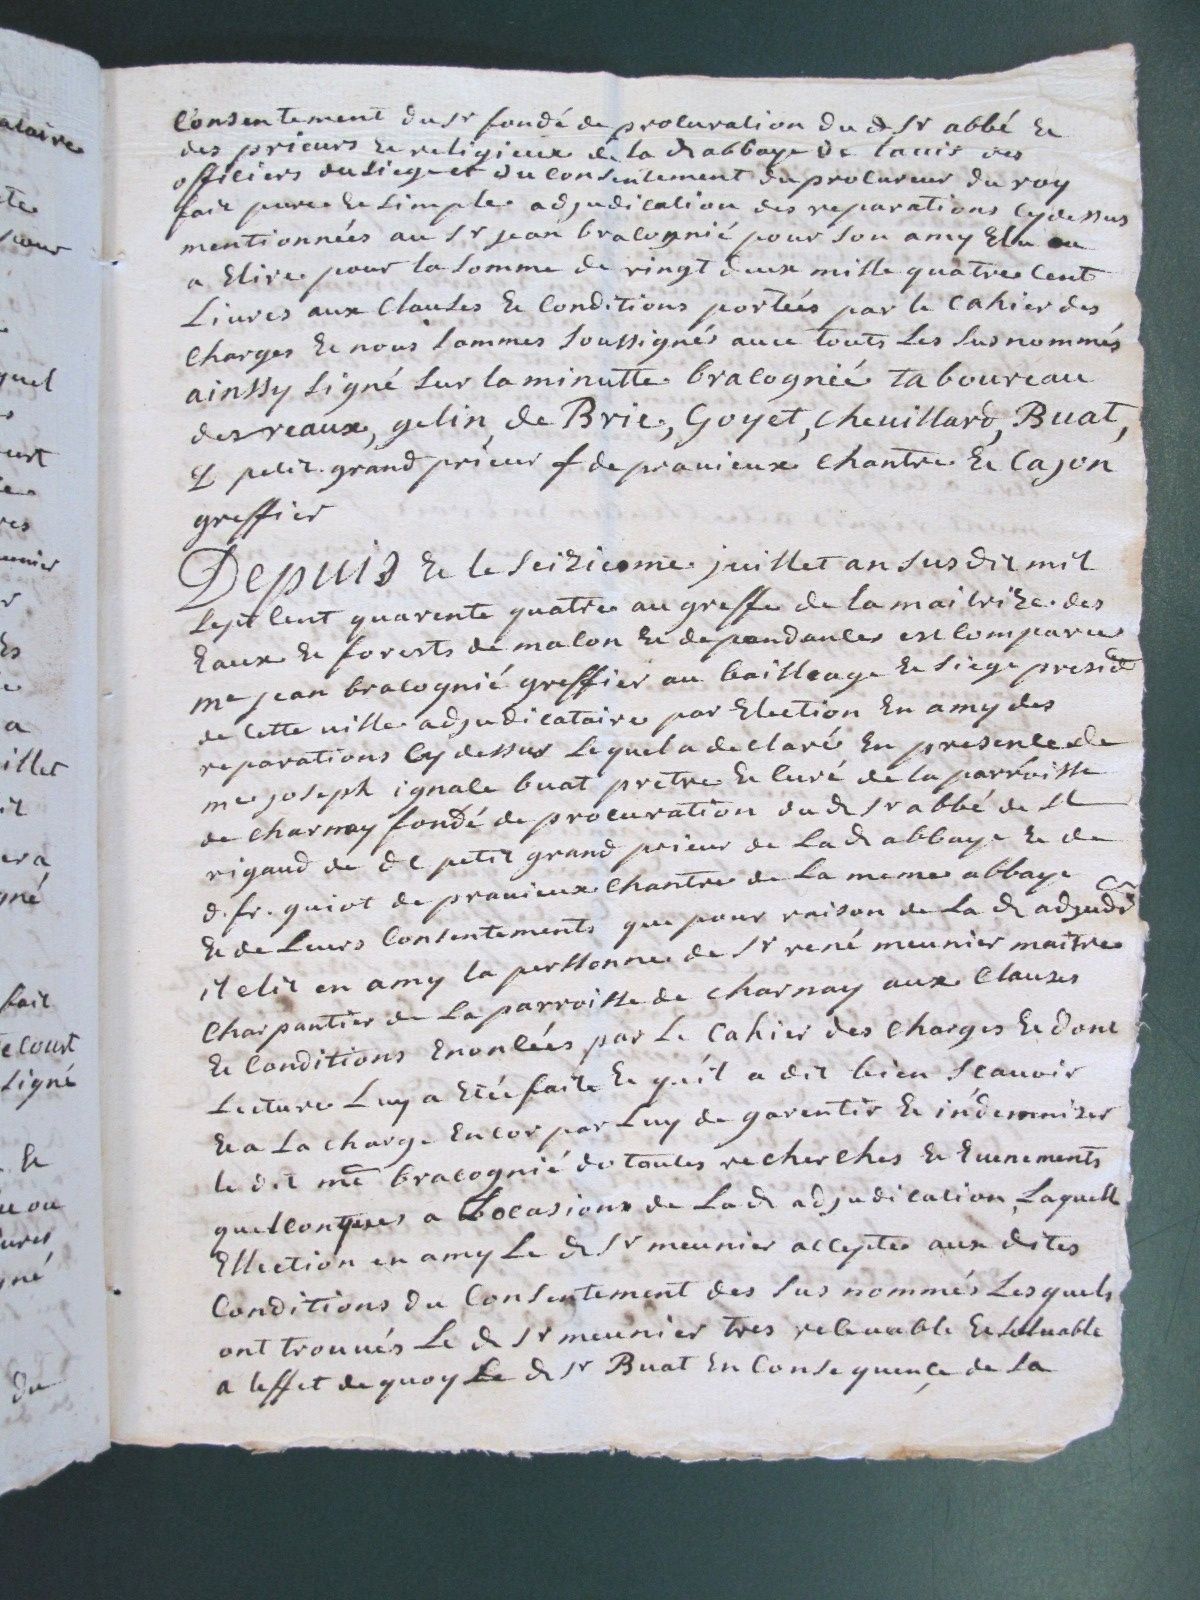 Consentement du Sr fondé de procuration du d Sr abbé Et
des prieurs Et religieux de la d abbaye De lauis des
officiers du siege et du Consentement du procureur du roy
fait pure Et Simple adjudication des reparations Cydessus
mentionnées au Sr jean bracognié pour Son amy Elu ou
a Elire pour la Somme de vingt deux mille quatre Cent
Livres aux Clauses Et Conditions portées par le Cahier des
Charges Et nous Sommes Soussignés avec touts Les Susnommés
ainssy Signé Sur la minutte bracognié taboureau
des reaux, gelin, de Brie, Goyet, Chevillard, Buat,
petit grand prieur f de pravieux Chantre Et Cajon
greffier
Depuis Et le Seizieme juillet an Susdit mil
Sept Cent quarente quatre au greffe de la maitrize des
Eaux Et forests de macon Et dependances est Comparu
me jean bracognié greffier au bailleage Et Siege presid
de Cette ville adjudicataire par Election En amy des
reparations Cydessus Lequel a declaré En presence de
me joseph ignace buat pretre Et Curé de la parroisse
de Charnay fondé de procuration du d Sr abbé de St
rigaud de de petit grand prieur de La d abbaye Et de
d. fr. guiot de pravieux Chantre de La meme abbaye
Et de Leurs Consentements que pour raison de La d adjudon
il elit en amy la perssonne de Sr rené meunier maitre
Charpantier de La parroisse de Charnay aux Clauses
Et Conditions Enoncées par Le Cahier des Charges Et dont
Lecture Luy a Etée faite Et qu'il a dit bien Scavoir
Et a La Charge Encor par Luy de garentir Et indemnizer
le dit me bracognié de toutes recherches Et Evenements
quelconques a Locasions de La d adjudication, Laquell
Ellection en amy Le d Sr meunier accepte aux dites
Conditions du Consentement des Sus nommés Lesquels
ont trouvés Le d Sr meunier tres recevable Et Solvable
a leffet de quoy Le d Sr Buat En Consequence de La